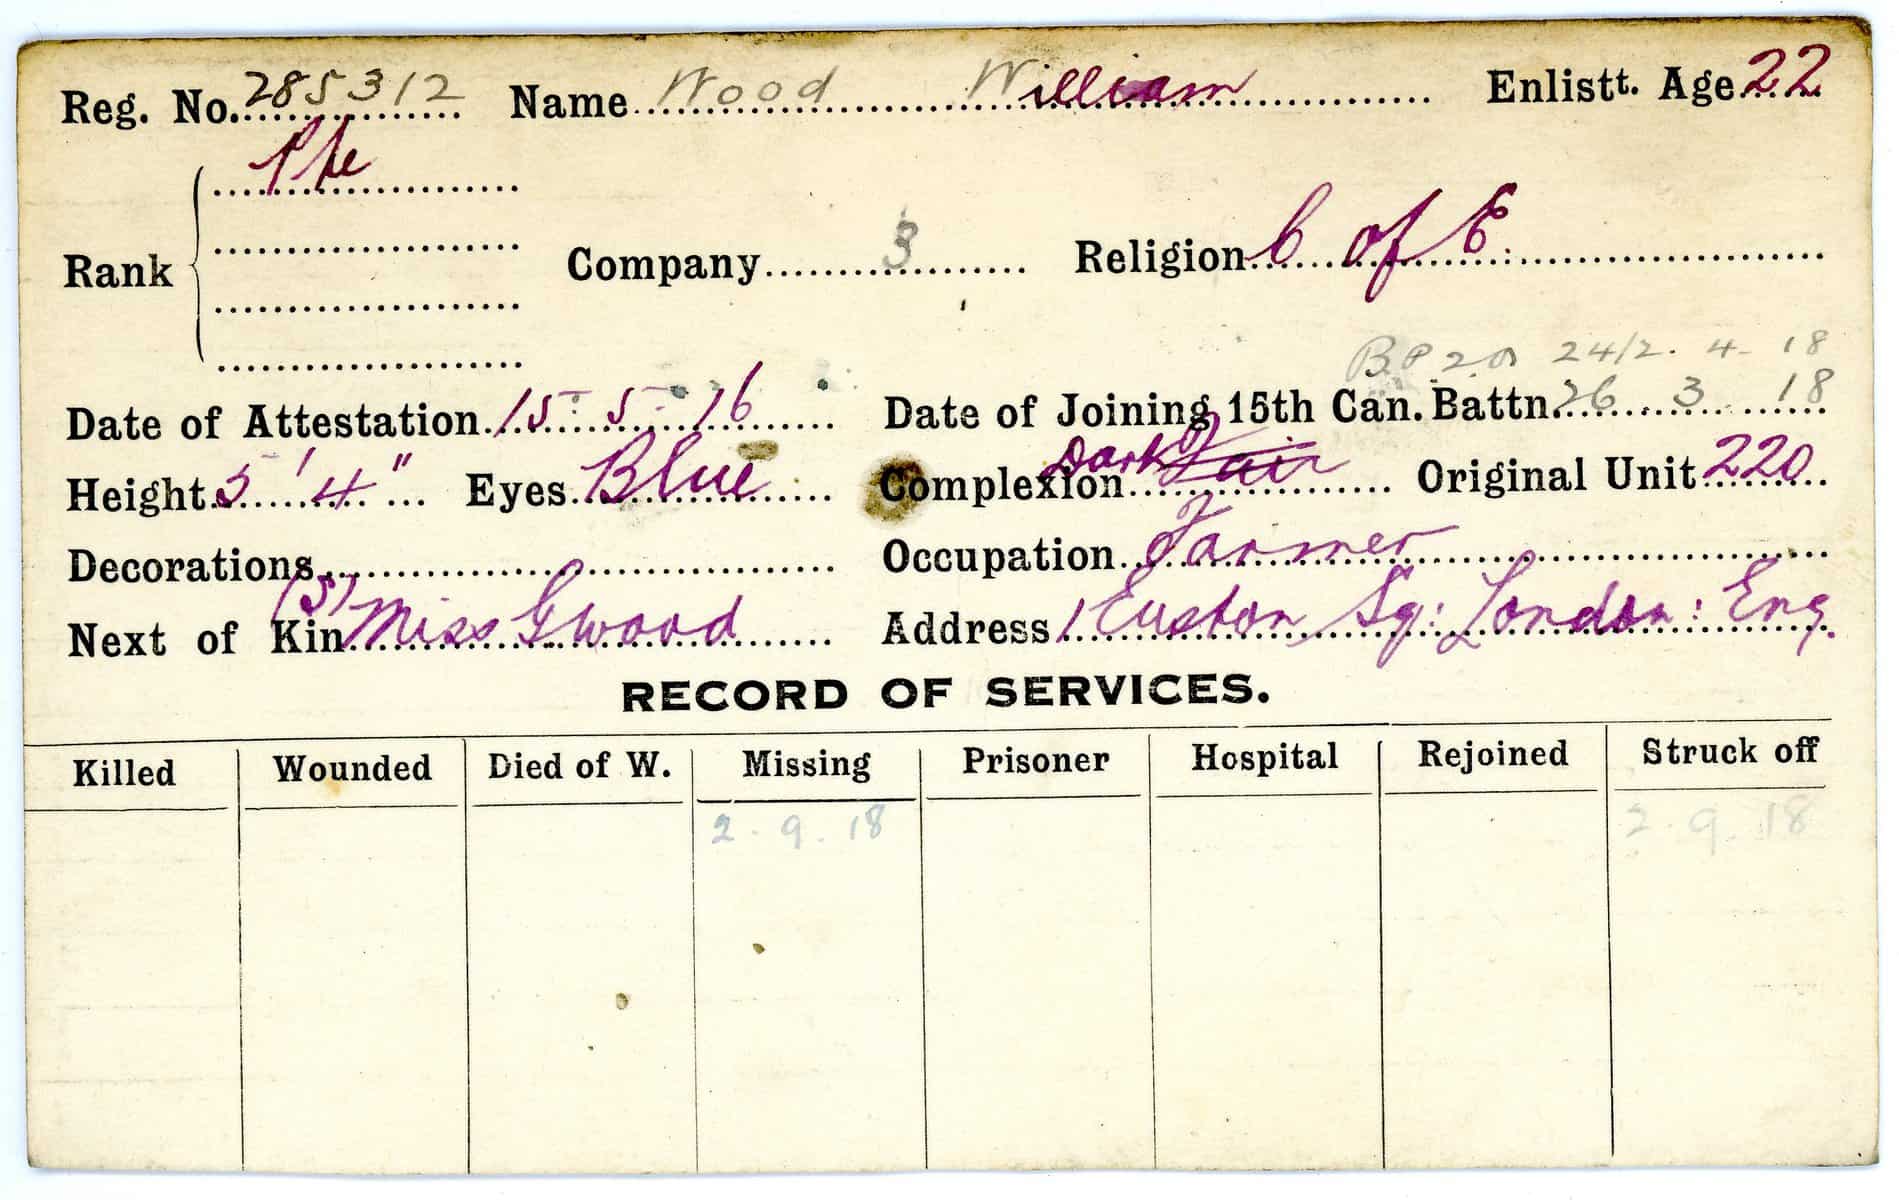 Reg. No. 285312 Name Wood William Enlistt. Age 22
Pte
Rank Company 3 Religion C of E
24/2. 4 - 18
Date of Attestation 15 : 5 - 16 Date of Joining 15th Can. Battn. 26 3 18
Height 5' 4" Eyes Blue Complexion Dark Fair Original Unit 220
Decorations Occupation Farmer
(S)
Next of Kin Miss G Wood Address 1 Euston Sq: London: Eng.
RECORD OF SERVICES.
Killed Wounded Died of W. Missing Prisoner Hospital Rejoined Struck off
2 . 9 . 18 2 . 9 . 18